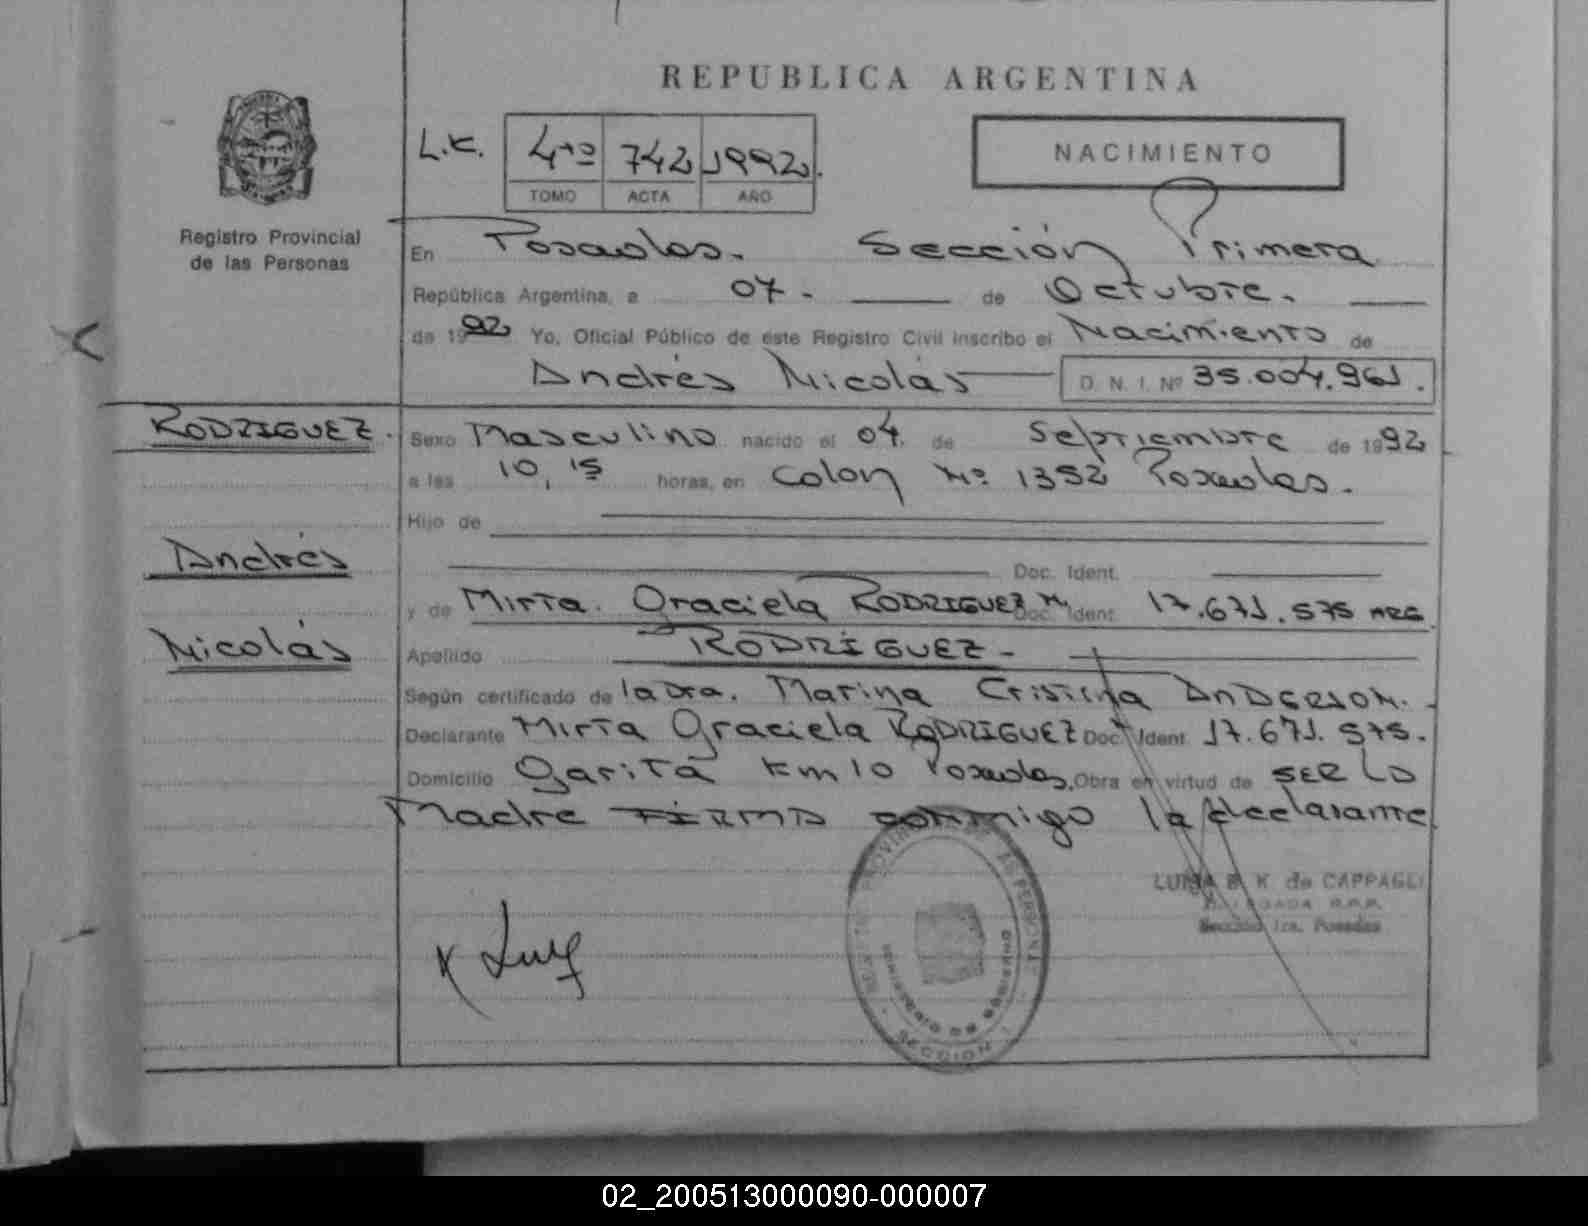 REPUBLICA ARGENTINA
L.K. 4to 742 1992.
TOMO ACTA AÑO
NACIMIENTO
Registro Provincial
de las Personas
En Posadas. Sección Primera
República Argentina, a 07. de Octubre.
de 1992 Yo, Oficial Público de este Registro Civil inscribo el Nacimiento de
Andrés Nicolás D. N. I. Nº 35.004.961.
RODRIGUEZ.
Andrés
Nicolás
Sexo Masculino nacido el 04. de Septiembre de 1992
a las 10,15 horas, en Colon Nº 1352 Posadas.
Hijo de
Doc. Ident.
y de Mirta Graciela RODRIGUEZ Doc. Ident. 17.671.575 ARG
Apellido RODRIGUEZ-
Según certificado de la Dra. Marina Cristina ANDERSON.
Declarante Mirta Graciela RODRIGUEZ Doc. Ident 17.671.575.
Domicilio Garita Km 10 Posadas, Obra en virtud de SER LA
Madre FIRMA conmigo la declarante
de CAPPAGLI
Sección 1ra. Posadas
MINISTERIO DE GOBIERNO
SECCION
02_200513000090-000007